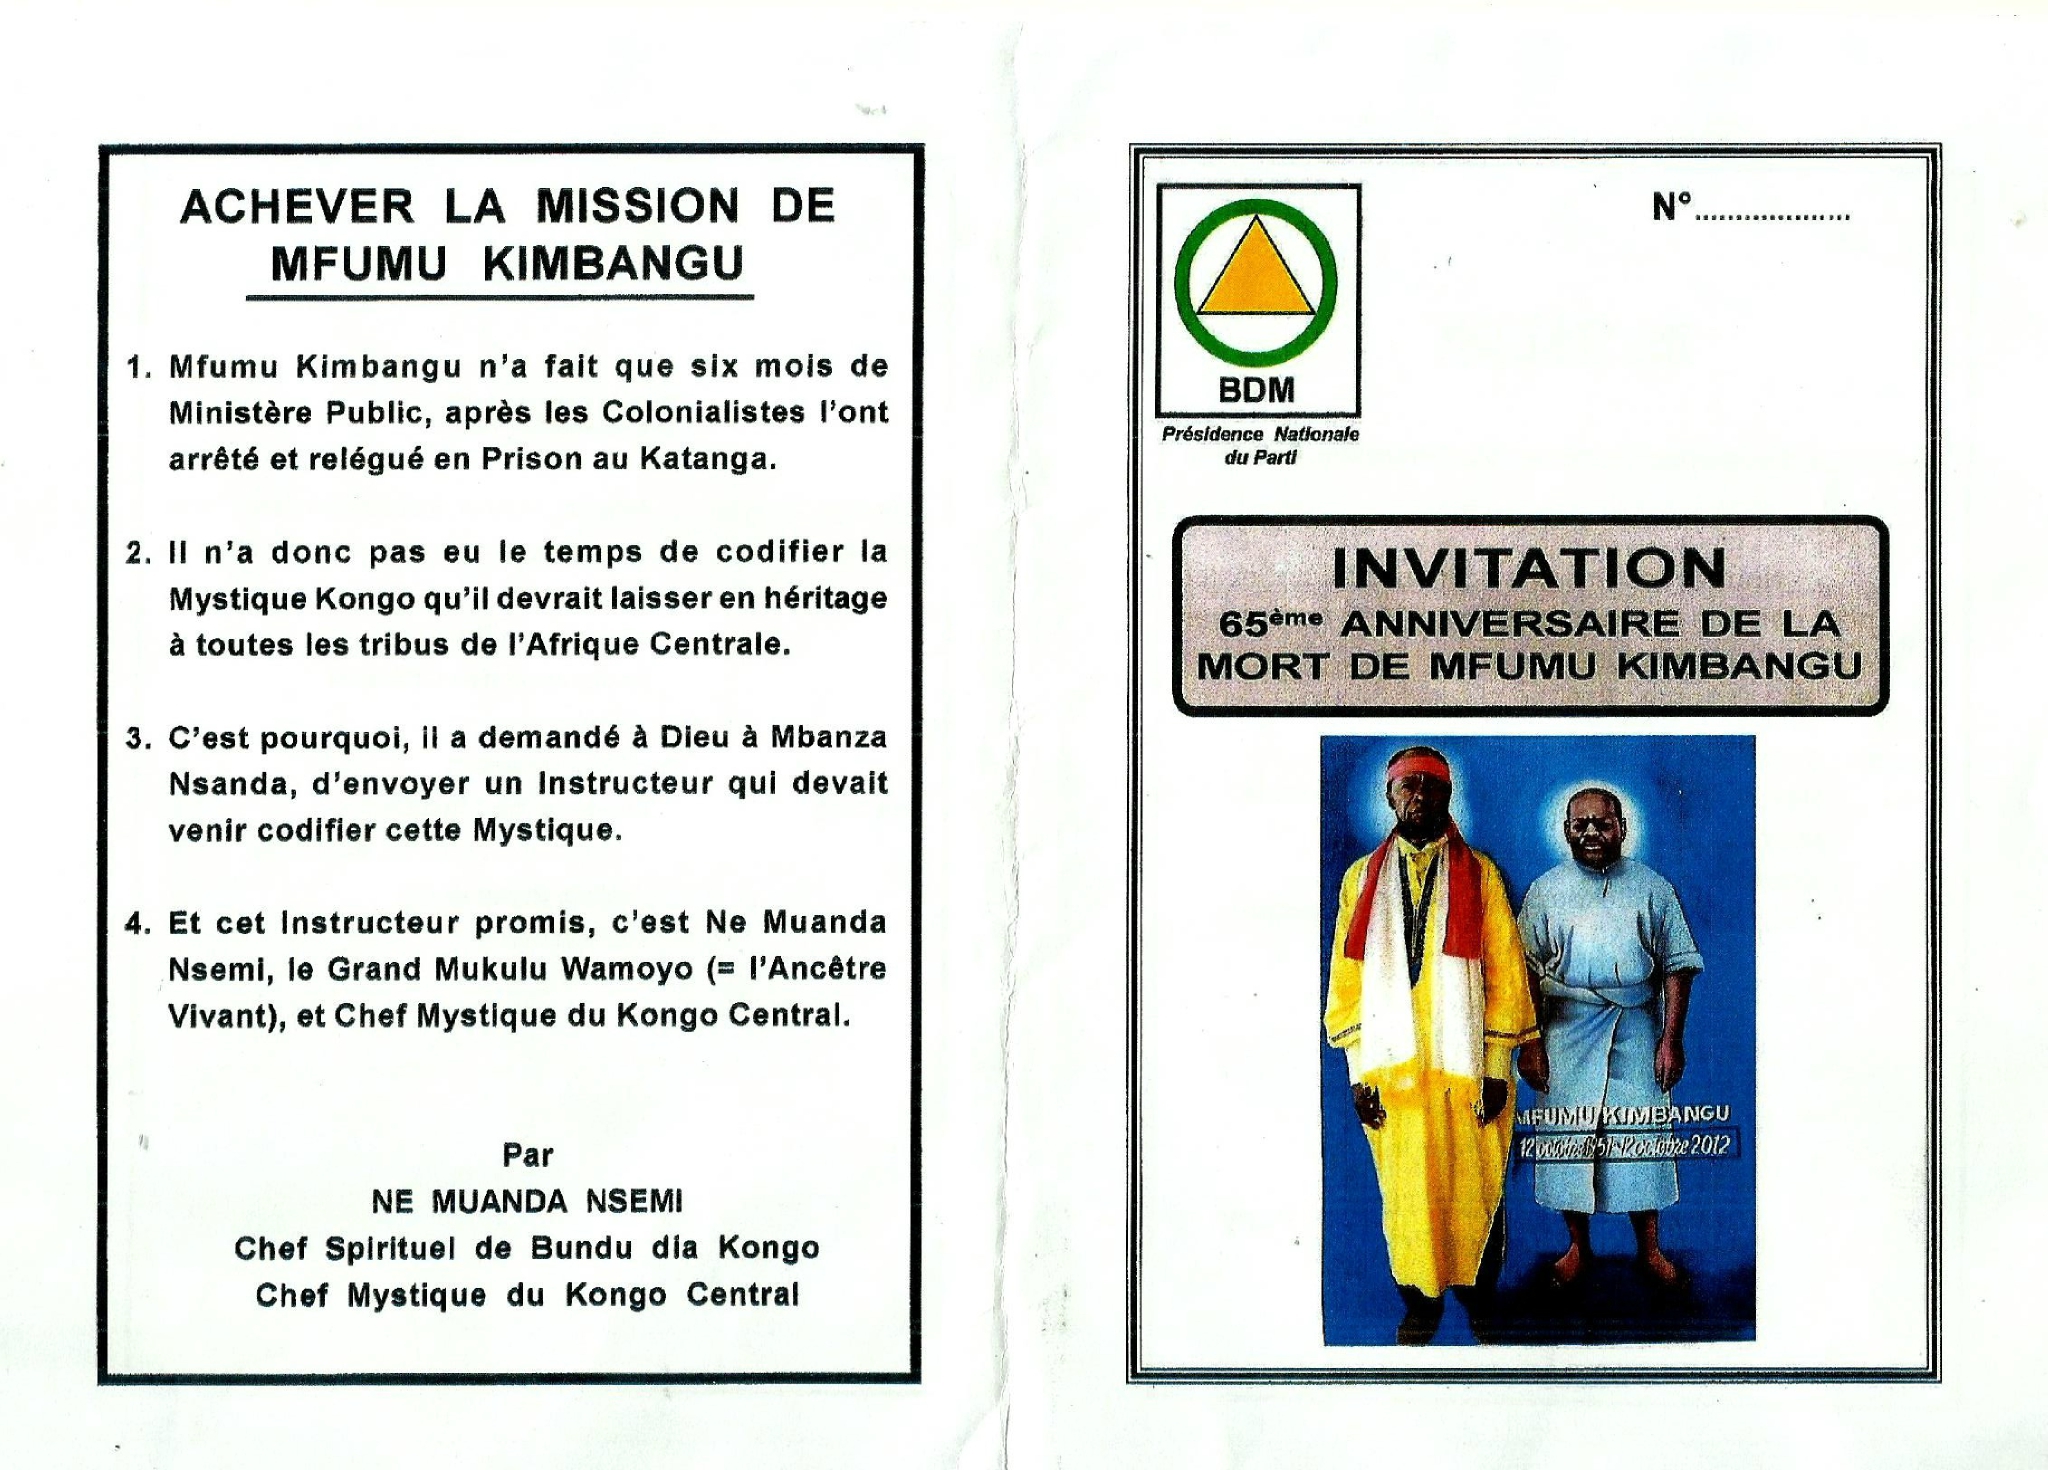 ACHEVER LA MISSION DE
MFUMU KIMBANGU
1. Mfumu Kimbangu n'a fait que six mois de
Ministère Public, après les Colonialistes l'ont
arrêté et relégué en Prison au Katanga.
2. Il n'a donc pas eu le temps de codifier la
Mystique Kongo qu'il devrait laisser en héritage
à toutes les tribus de l'Afrique Centrale.
3. C'est pourquoi, il a demandé à Dieu à Mbanza
Nsanda, d'envoyer un Instructeur qui devait
venir codifier cette Mystique.
4. Et cet Instructeur promis, c'est Ne Muanda
Nsemi, le Grand Mukulu Wamoyo (= l'Ancêtre
Vivant), et Chef Mystique du Kongo Central.
Par
NE MUANDA NSEMI
Chef Spirituel de Bundu dia Kongo
Chef Mystique du Kongo Central
N°...................
BDM
Présidence Nationale
du Parti
INVITATION
65ème ANNIVERSAIRE DE LA
MORT DE MFUMU KIMBANGU
MFUMU KIMBANGU
12 octobre 1951-12 octobre 2012